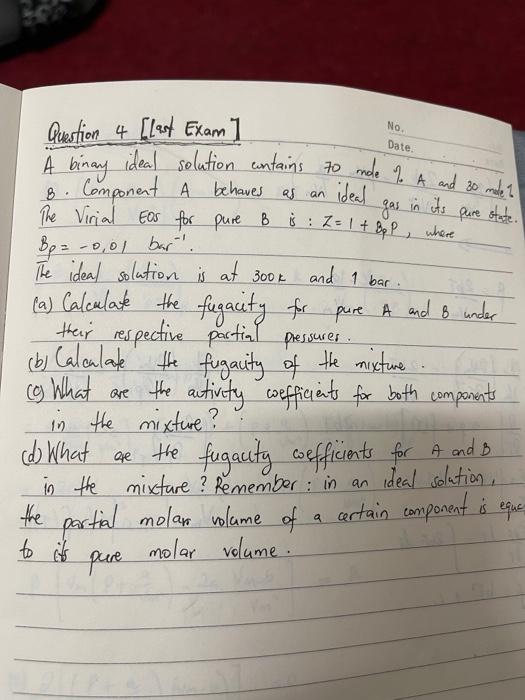 Question 4 [Last Exam]
No.
Date.
A binary ideal solution contains 70 mole % A and 30 mole %
B. Component A behaves as an ideal gas in its pure state.
The Virial EOS for pure B is : Z = 1 + BpP, where
Bp = -0,01 bar⁻¹.
The ideal solution is at 300K and 1 bar.
(a) Calculate the fugacity for pure A and B under
their respective partial pressures.
(b) Calculate the fugacity of the mixture.
(c) What are the activity coefficients for both components
in the mixture?
(d) What are the fugacity coefficients for A and B
in the mixture? Remember: in an ideal solution,
the partial molar volume of a certain component is equal
to its pure molar volume.